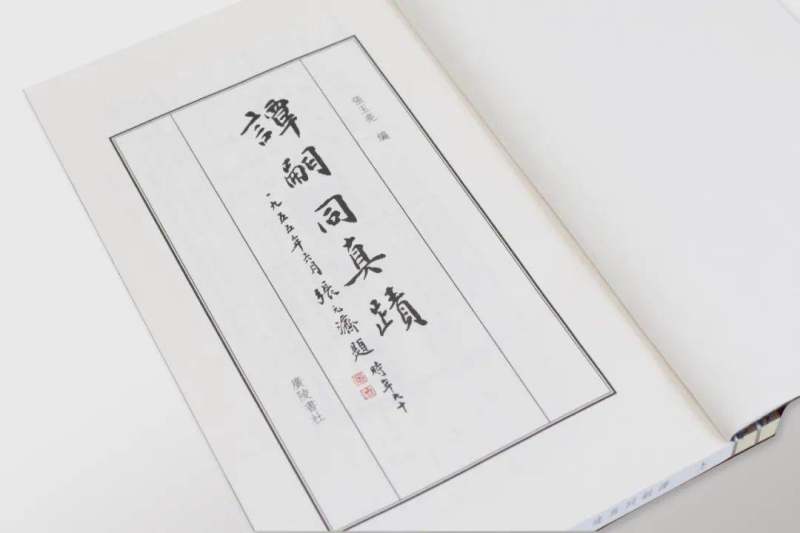 張玉亮 編
譚嗣同真蹟
一九五五年六月 張元濟題 時年九十
廣陵書社